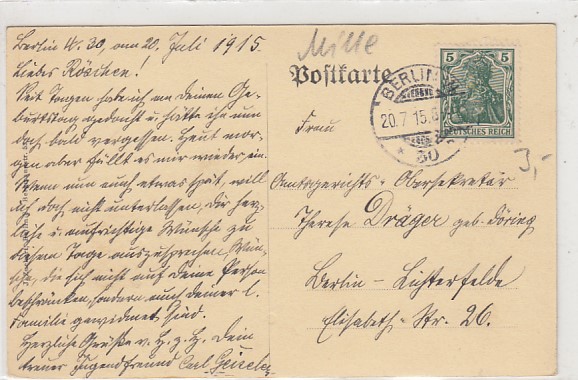 Berlin W. 30, am 20. Juli 1915.
Liebes Röschen!
Seit Tagen habe ich an deinen Ge-
burtstag gedacht u. hätte ihn nun
doch bald vergessen. Heut mor-
gen aber fällt es mir wieder ein.
Wenn nun auch etwas spät, will
ich doch nicht unterlassen, dir herz-
liche u. aufrichtige Wünsche zu
diesem Tage auszusprechen. Wün-
sche, die sich nicht auf Deine Person
beschränken, sondern auch deiner l.
Familie gewidmet sind.
Herzliche Grüße v. H. z. H. Dein
treuer Jugendfreund Carl
Mitte
Postkarte
5 5
DEUTSCHES REICH
BERLIN
20.7.15.
* 30
3,-
Frau
Amtsgerichts-Obersekretär
Therese Dräger geb. Döring
Berlin-Lichterfelde
Elisabeth-Str. 26.